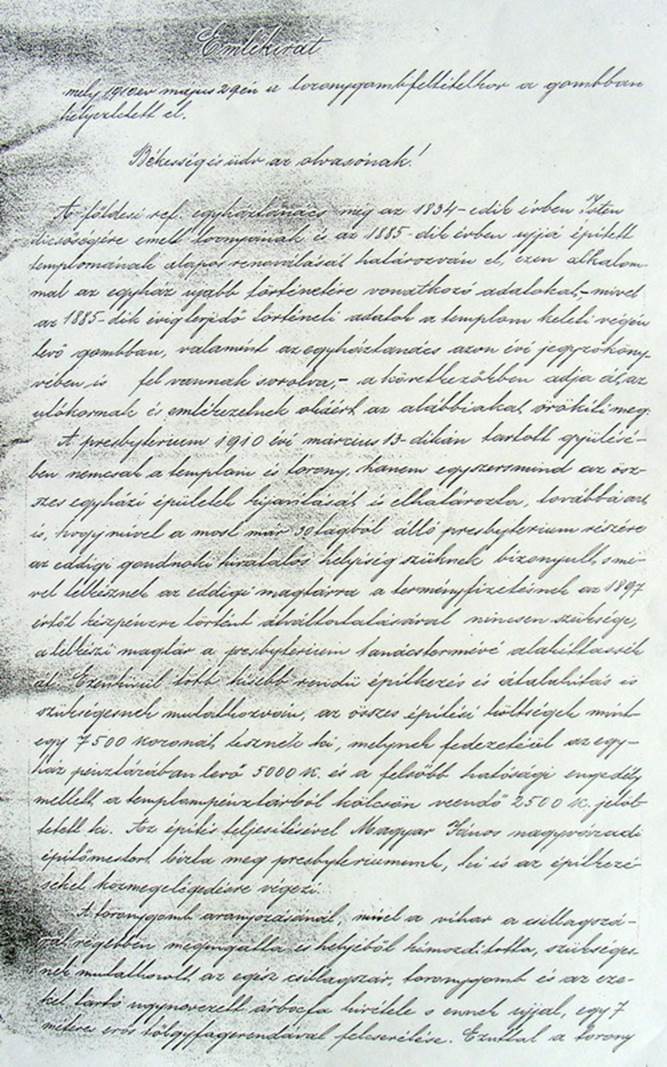 Emlékirat
mely 1910 év május 29én a toronygombfeltételkor a gombban
helyeztetett el.
Békesség és üdv az olvasónak!
A földesi ref. egyháztanács még az 1834-edik évben Isten
dicsőségére emelt tornyának és az 1885-dik évben ujjá épített
templomának alapos renoválását határozván el, ezen alkalom-
mal az egyház ujabb történetére vonatkozó adatokat, - mivel
az 1885-dik évig terjedő történeti adatok a templom keleti végén
levő gombban, valamint az egyháztanács azon évi jegyzőköny-
vében is fel vannak sorolva, - a következőkben adja át az
utókornak és emlékezetnek okáért az alábbiakat örökíti meg.
A presbyterium 1910 évi március 13-dikán tartott gyülésé-
ben nemcsak a templom és torony, hanem egyszersmind az ösz-
szes egyházi épületek kijavítását is elhatározta, továbbá azt
is, hogy mivel a most már 30 tagból álló presbyterium részére
az eddigi gondnoki hivatalos helyiség szűknek bizonyult, s mi-
vel lelkésznek az eddigi magtárra a terményfizetésnek az 1897
évtől készpénzre történt átváltoztatásával nincsen szüksége,
a lelkészi magtár a presbyterium tanácstermévé alakíttassék
át. Ezenkívül több kisebb rendü épitkezés és átalakítás is
szükségesnek mutatkozván, az összes épitési költségek mint-
egy 7500 koronát tesznek ki, melynek fedezetéül az egy-
ház pénztárában levő 5000 K. és a felsőbb hatósági engedély
mellett a templompénztárból kölcsön veendő 2500 K. jelöl-
tetett ki. Az épités teljesítésével Magyar János nagyváradi
épitőmestert bizta meg presbyteriumunk, ki is az épitkezé-
seket közmegelégedésre végezi.
A toronygomb aranyozásánál, mivel a vihar a csillagszá-
rat régebben megingatta és helyéből kimozdította, szükséges-
nek mutatkozott az egész csillagszár, toronygomb és az eze-
ket tartó ugynevezett árbocfa kivétele s ennek ujjal, egy 7
méteres erős tölgyfagerendával felcserélése. Ezuttal a torony